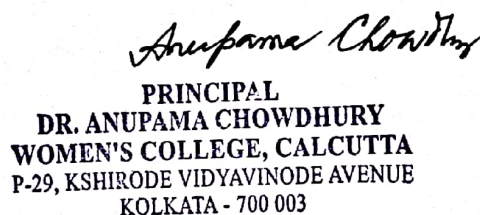 Anupama Chowdhury
PRINCIPAL
DR. ANUPAMA CHOWDHURY
WOMEN'S COLLEGE, CALCUTTA
P-29, KSHIRODE VIDYAVINODE AVENUE
KOLKATA - 700 003